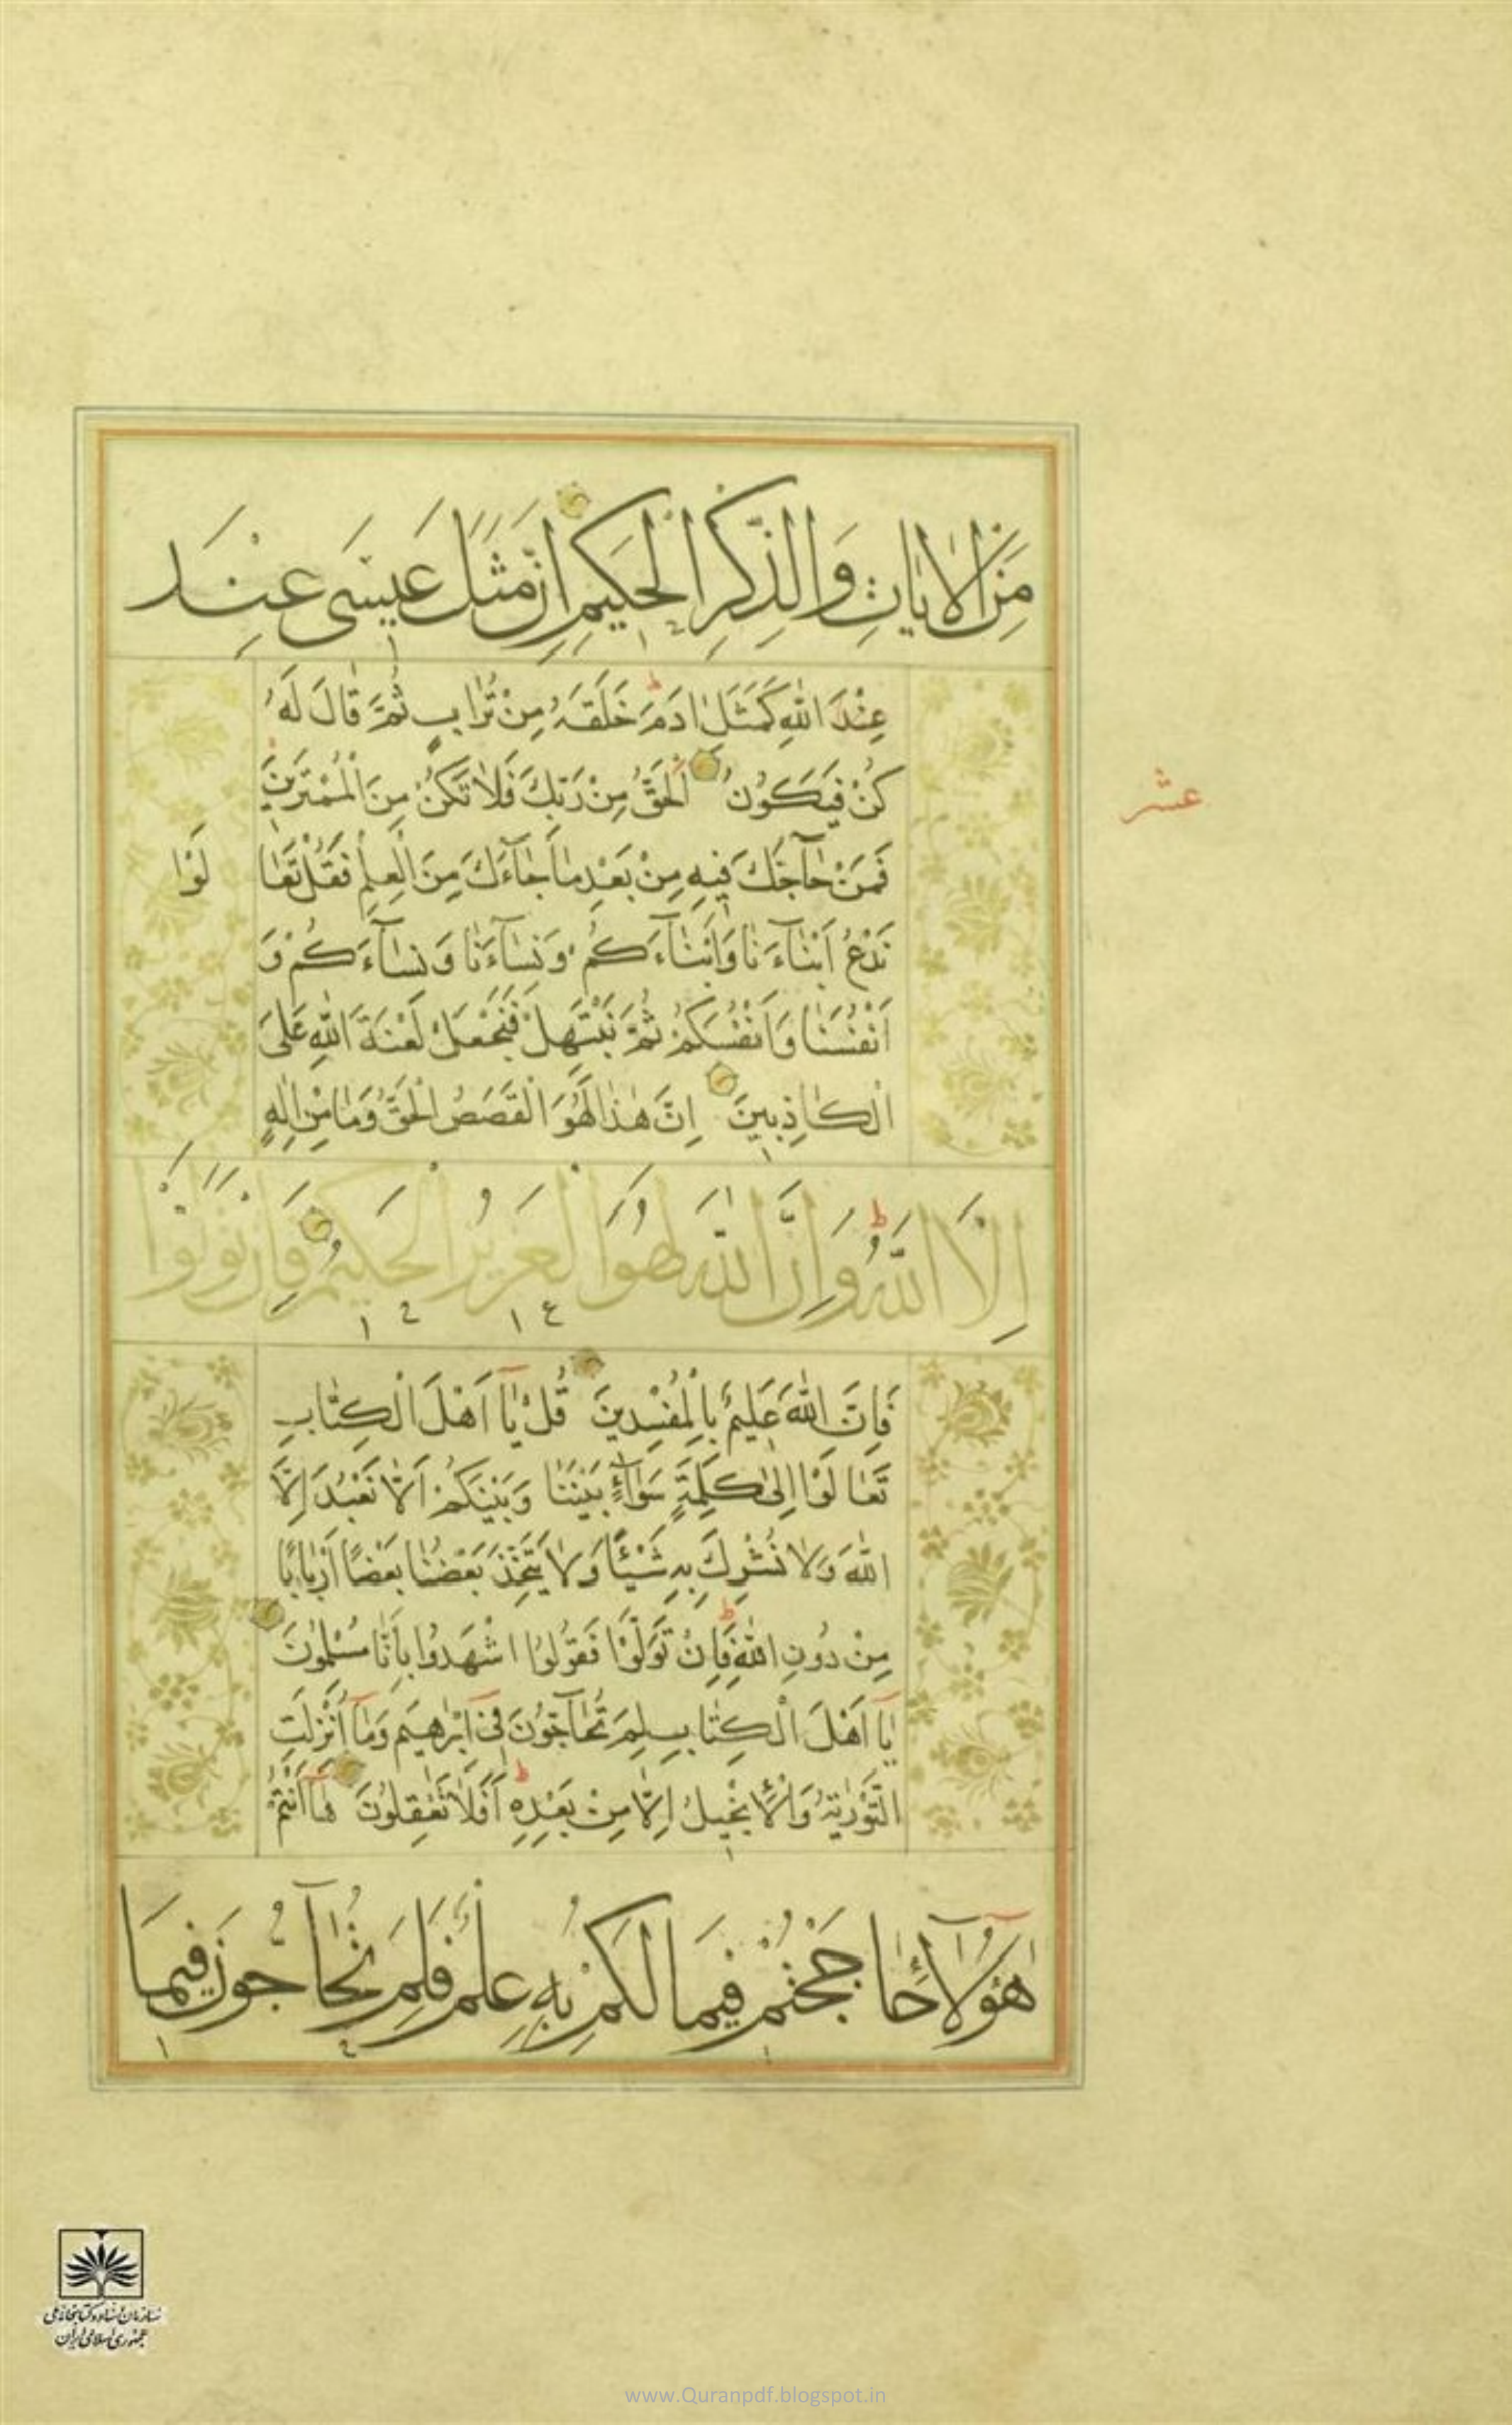 مِنَ الْاٰيَاتِ وَالذِّكْرِ الْحَكِيمِ اِنَّ مَثَلَ عِيسَى عِنْدَ
عِنْدَ اللّٰهِ كَمَثَلِ اٰدَمَ خَلَقَهُ مِنْ تُرَابٍ ثُمَّ قَالَ لَهُ
كُنْ فَيَكُونُ اَلْحَقُّ مِنْ رَبِّكَ فَلَا تَكُنْ مِنَ الْمُمْتَرِينَ
عشر
فَمَنْ حَآجَّكَ فِيهِ مِنْ بَعْدِ مَا جَآءَكَ مِنَ الْعِلْمِ فَقُلْ تَعَا لَوْا
نَدْعُ اَبْنَآءَنَا وَاَبْنَآءَكُمْ وَنِسَآءَنَا وَنِسَآءَكُمْ وَ
اَنْفُسَنَا وَاَنْفُسَكُمْ ثُمَّ نَبْتَهِلْ فَنَجْعَلْ لَعْنَةَ اللّٰهِ عَلَى
الْكَاذِبِينَ اِنَّ هٰذَا لَهُوَ الْقَصَصُ الْحَقُّ وَمَا مِنْ اِلٰهٍ
اِلَّا اللّٰهُ وَاِنَّ اللّٰهَ لَهُوَ الْعَزِيزُ الْحَكِيمُ فَاِنْ تَوَلَّوْا
فَاِنَّ اللّٰهَ عَلِيمٌ بِالْمُفْسِدِينَ قُلْ يَآ اَهْلَ الْكِتَابِ
تَعَالَوْا اِلٰى كَلِمَةٍ سَوَآءٍ بَيْنَنَا وَبَيْنَكُمْ اَلَّا نَعْبُدَ اِلَّا
اللّٰهَ وَلَا نُشْرِكَ بِهِ شَيْئًا وَلَا يَتَّخِذَ بَعْضُنَا بَعْضًا اَرْبَابًا
مِنْ دُونِ اللّٰهِ فَاِنْ تَوَلَّوْا فَقُولُوا اشْهَدُوا بِاَنَّا مُسْلِمُونَ
يَآ اَهْلَ الْكِتَابِ لِمَ تُحَآجُّونَ فِىٓ اِبْرٰهِيمَ وَمَآ اُنْزِلَتِ
التَّوْرٰيةُ وَالْاِنْجِيلُ اِلَّا مِنْ بَعْدِهِ اَفَلَا تَعْقِلُونَ هَآ اَنْتُمْ
هٰٓؤُلَآءِ حَاجَجْتُمْ فِيمَا لَكُمْ بِهِ عِلْمٌ فَلِمَ تُحَآجُّونَ فِيمَا
سازمان اسناد و کتابخانه ملی
جمهوری اسلامی ایران
www.Quranpdf.blogspot.in